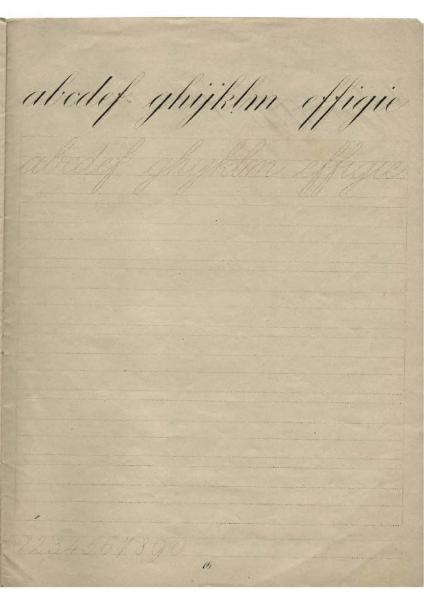 abcdef ghijklm effigie
abcdef ghijklm effigie
1234567890
16